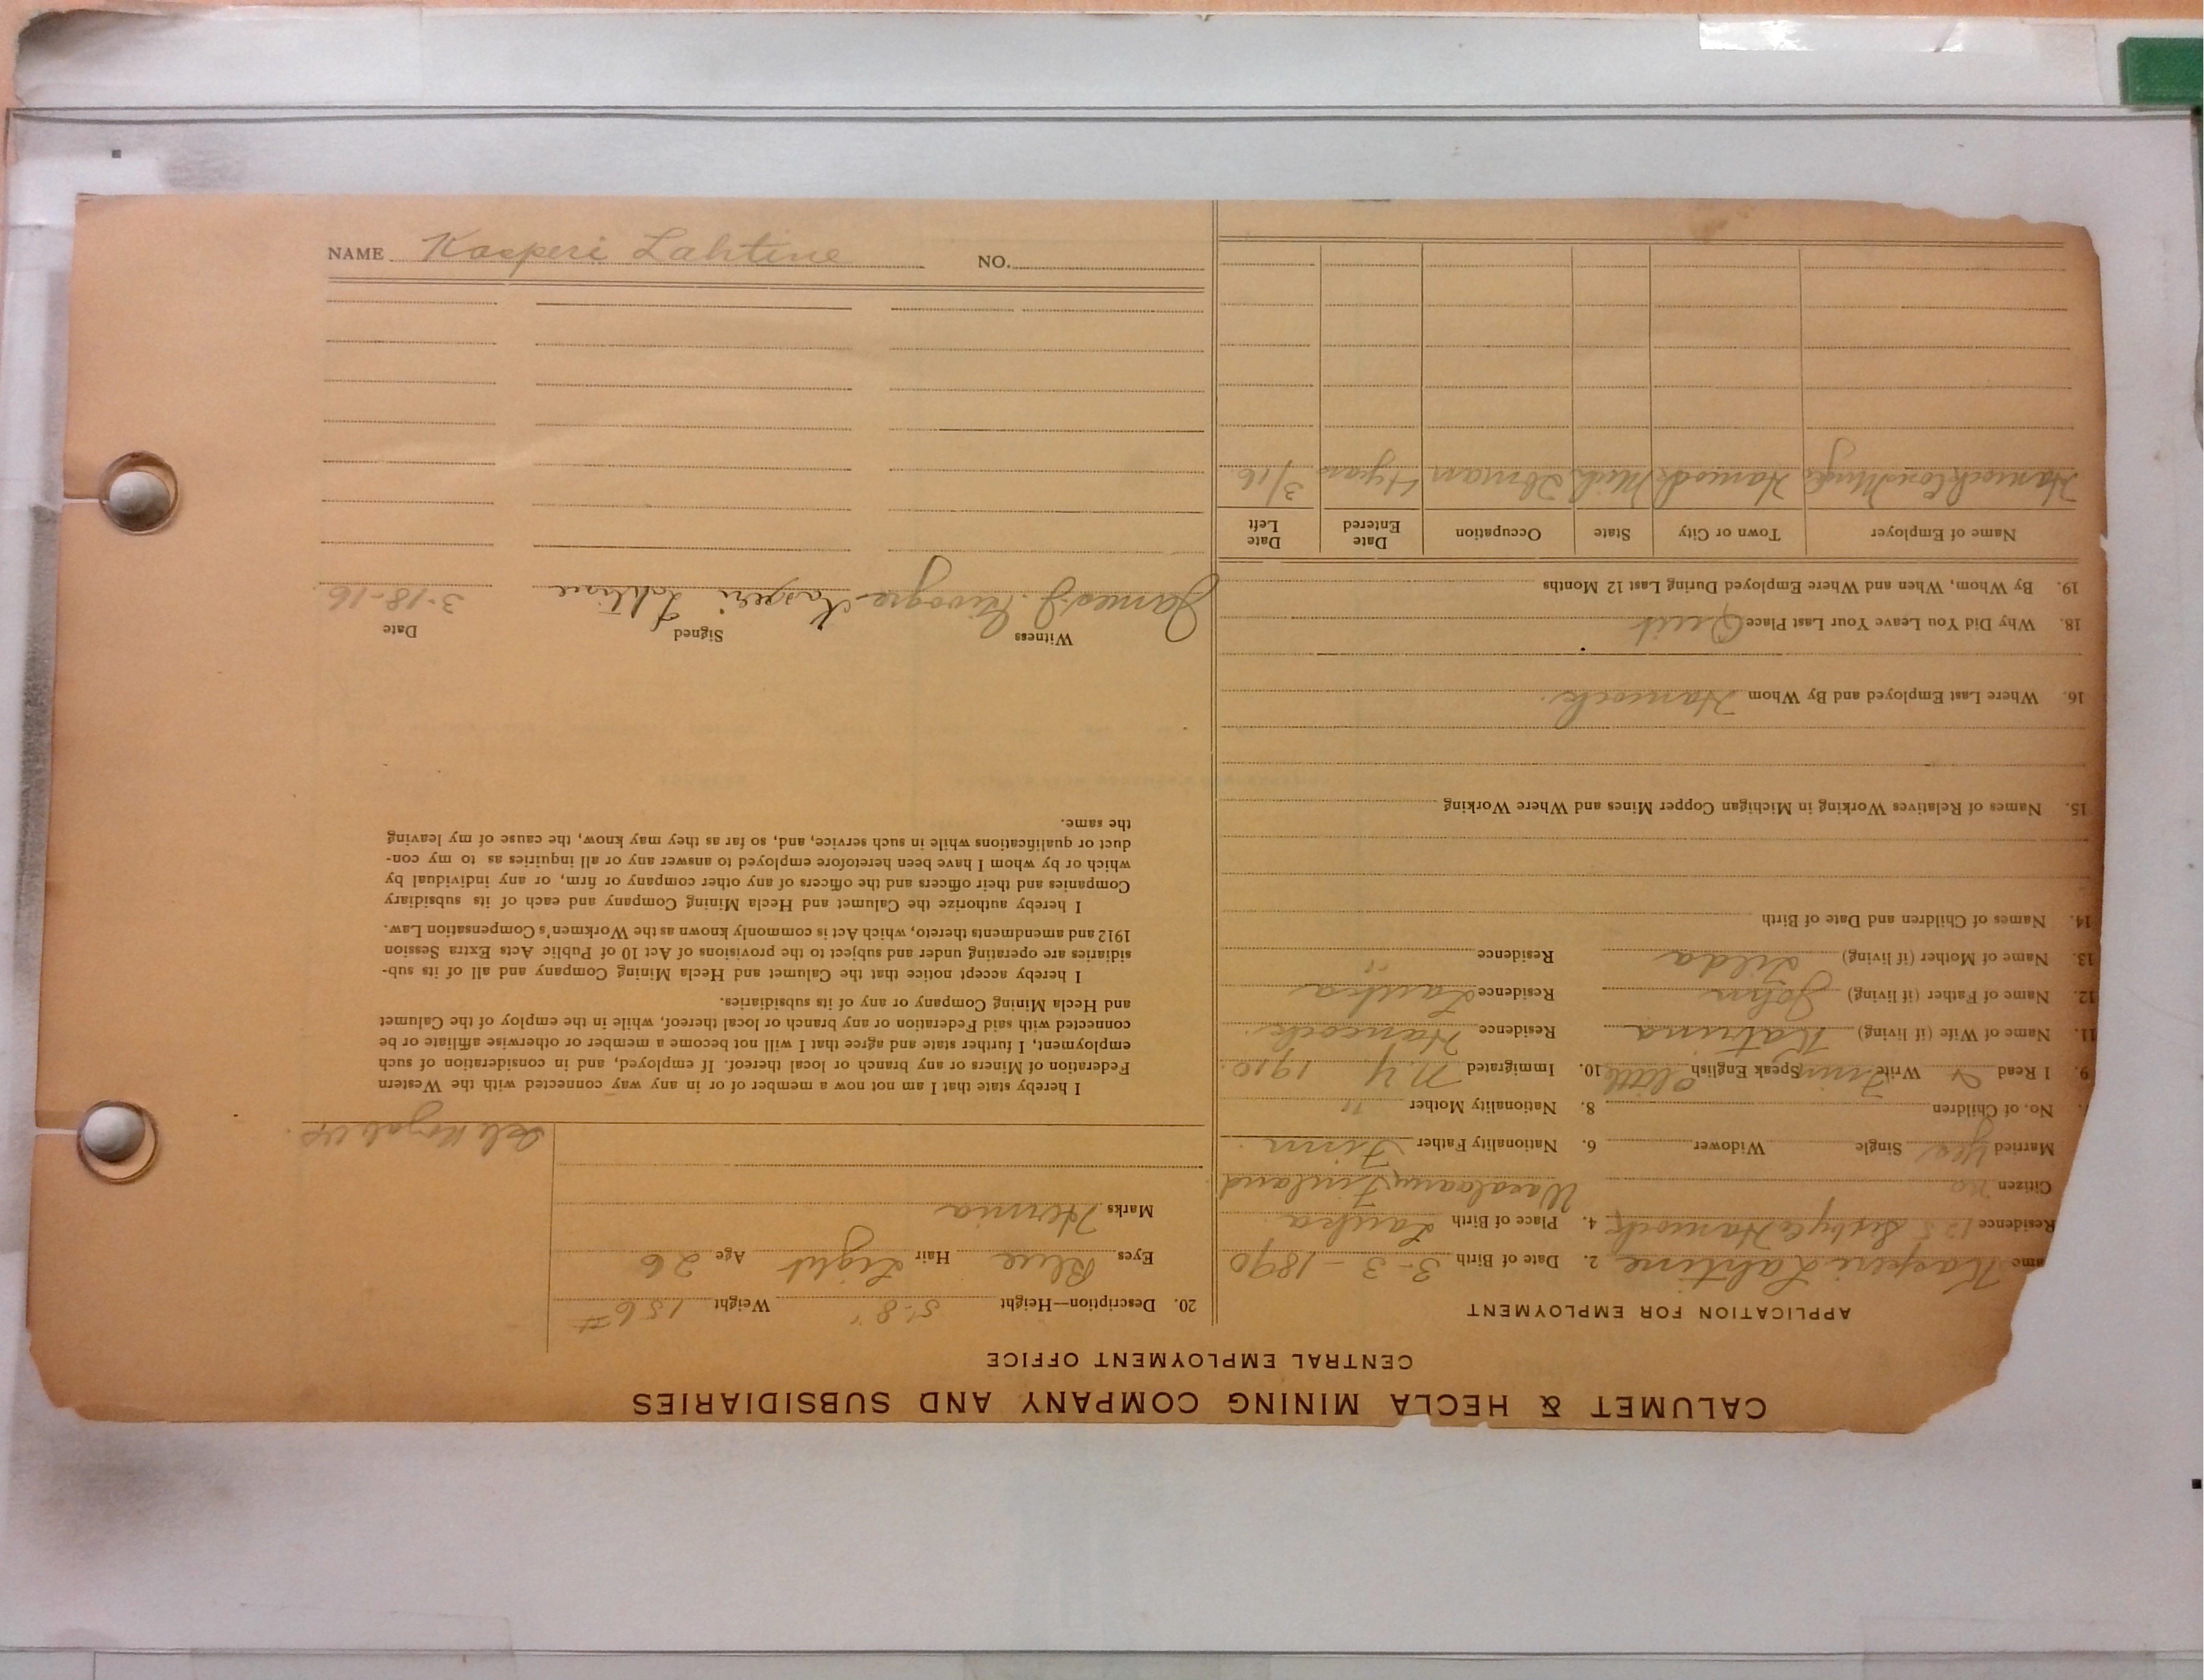 CALUMET & HECLA MINING COMPANY AND SUBSIDIARIES
CENTRAL EMPLOYMENT OFFICE
APPLICATION FOR EMPLOYMENT
ame Kasperi Lahtine 2. Date of Birth 3-3-1890
Residence 125 Hancock 4. Place of Birth Lauka
Citizen no Finland
Married yes Single Widower 6. Nationality Father Finn
No. of Children 8. Nationality Mother "
9. I Read & Write Finn Speak English little 10. Immigrated N.Y. 1910
11. Name of Wife (if living) Katrina Residence Hancock
12. Name of Father (if living) John Residence Lauka
13. Name of Mother (if living) Lilda Residence "
14. Names of Children and Date of Birth
15. Names of Relatives Working in Michigan Copper Mines and Where Working
16. Where Last Employed and By Whom Hancock.
18. Why Did You Leave Your Last Place Quit
19. By Whom, When and Where Employed During Last 12 Months
Name of Employer Town or City State Occupation Date Entered Date Left
Hancock Con Hancock Mich 4 years 3/16
20. Description—Height 5-8" Weight 156#
Eyes Blue Hair Light Age 26
Marks Hernia
I hereby state that I am not now a member of or in any way connected with the Western
Federation of Miners or any branch or local thereof. If employed, and in consideration of such
employment, I further state and agree that I will not become a member or otherwise affiliate or be
connected with said Federation or any branch or local thereof, while in the employ of the Calumet
and Hecla Mining Company or any of its subsidiaries.
I hereby accept notice that the Calumet and Hecla Mining Company and all of its sub-
sidiaries are operating under and subject to the provisions of Act 10 of Public Acts Extra Session
1912 and amendments thereto, which Act is commonly known as the Workmen's Compensation Law.
I hereby authorize the Calumet and Hecla Mining Company and each of its subsidiary
Companies and their officers and the officers of any other company or firm, or any individual by
which or by whom I have been heretofore employed to answer any or all inquiries as to my con-
duct or qualifications while in such service, and, so far as they may know, the cause of my leaving
the same.
Witness Signed Date
James J. Kasperi Lahtine 3-18-16.
NAME Kasperi Lahtine NO.